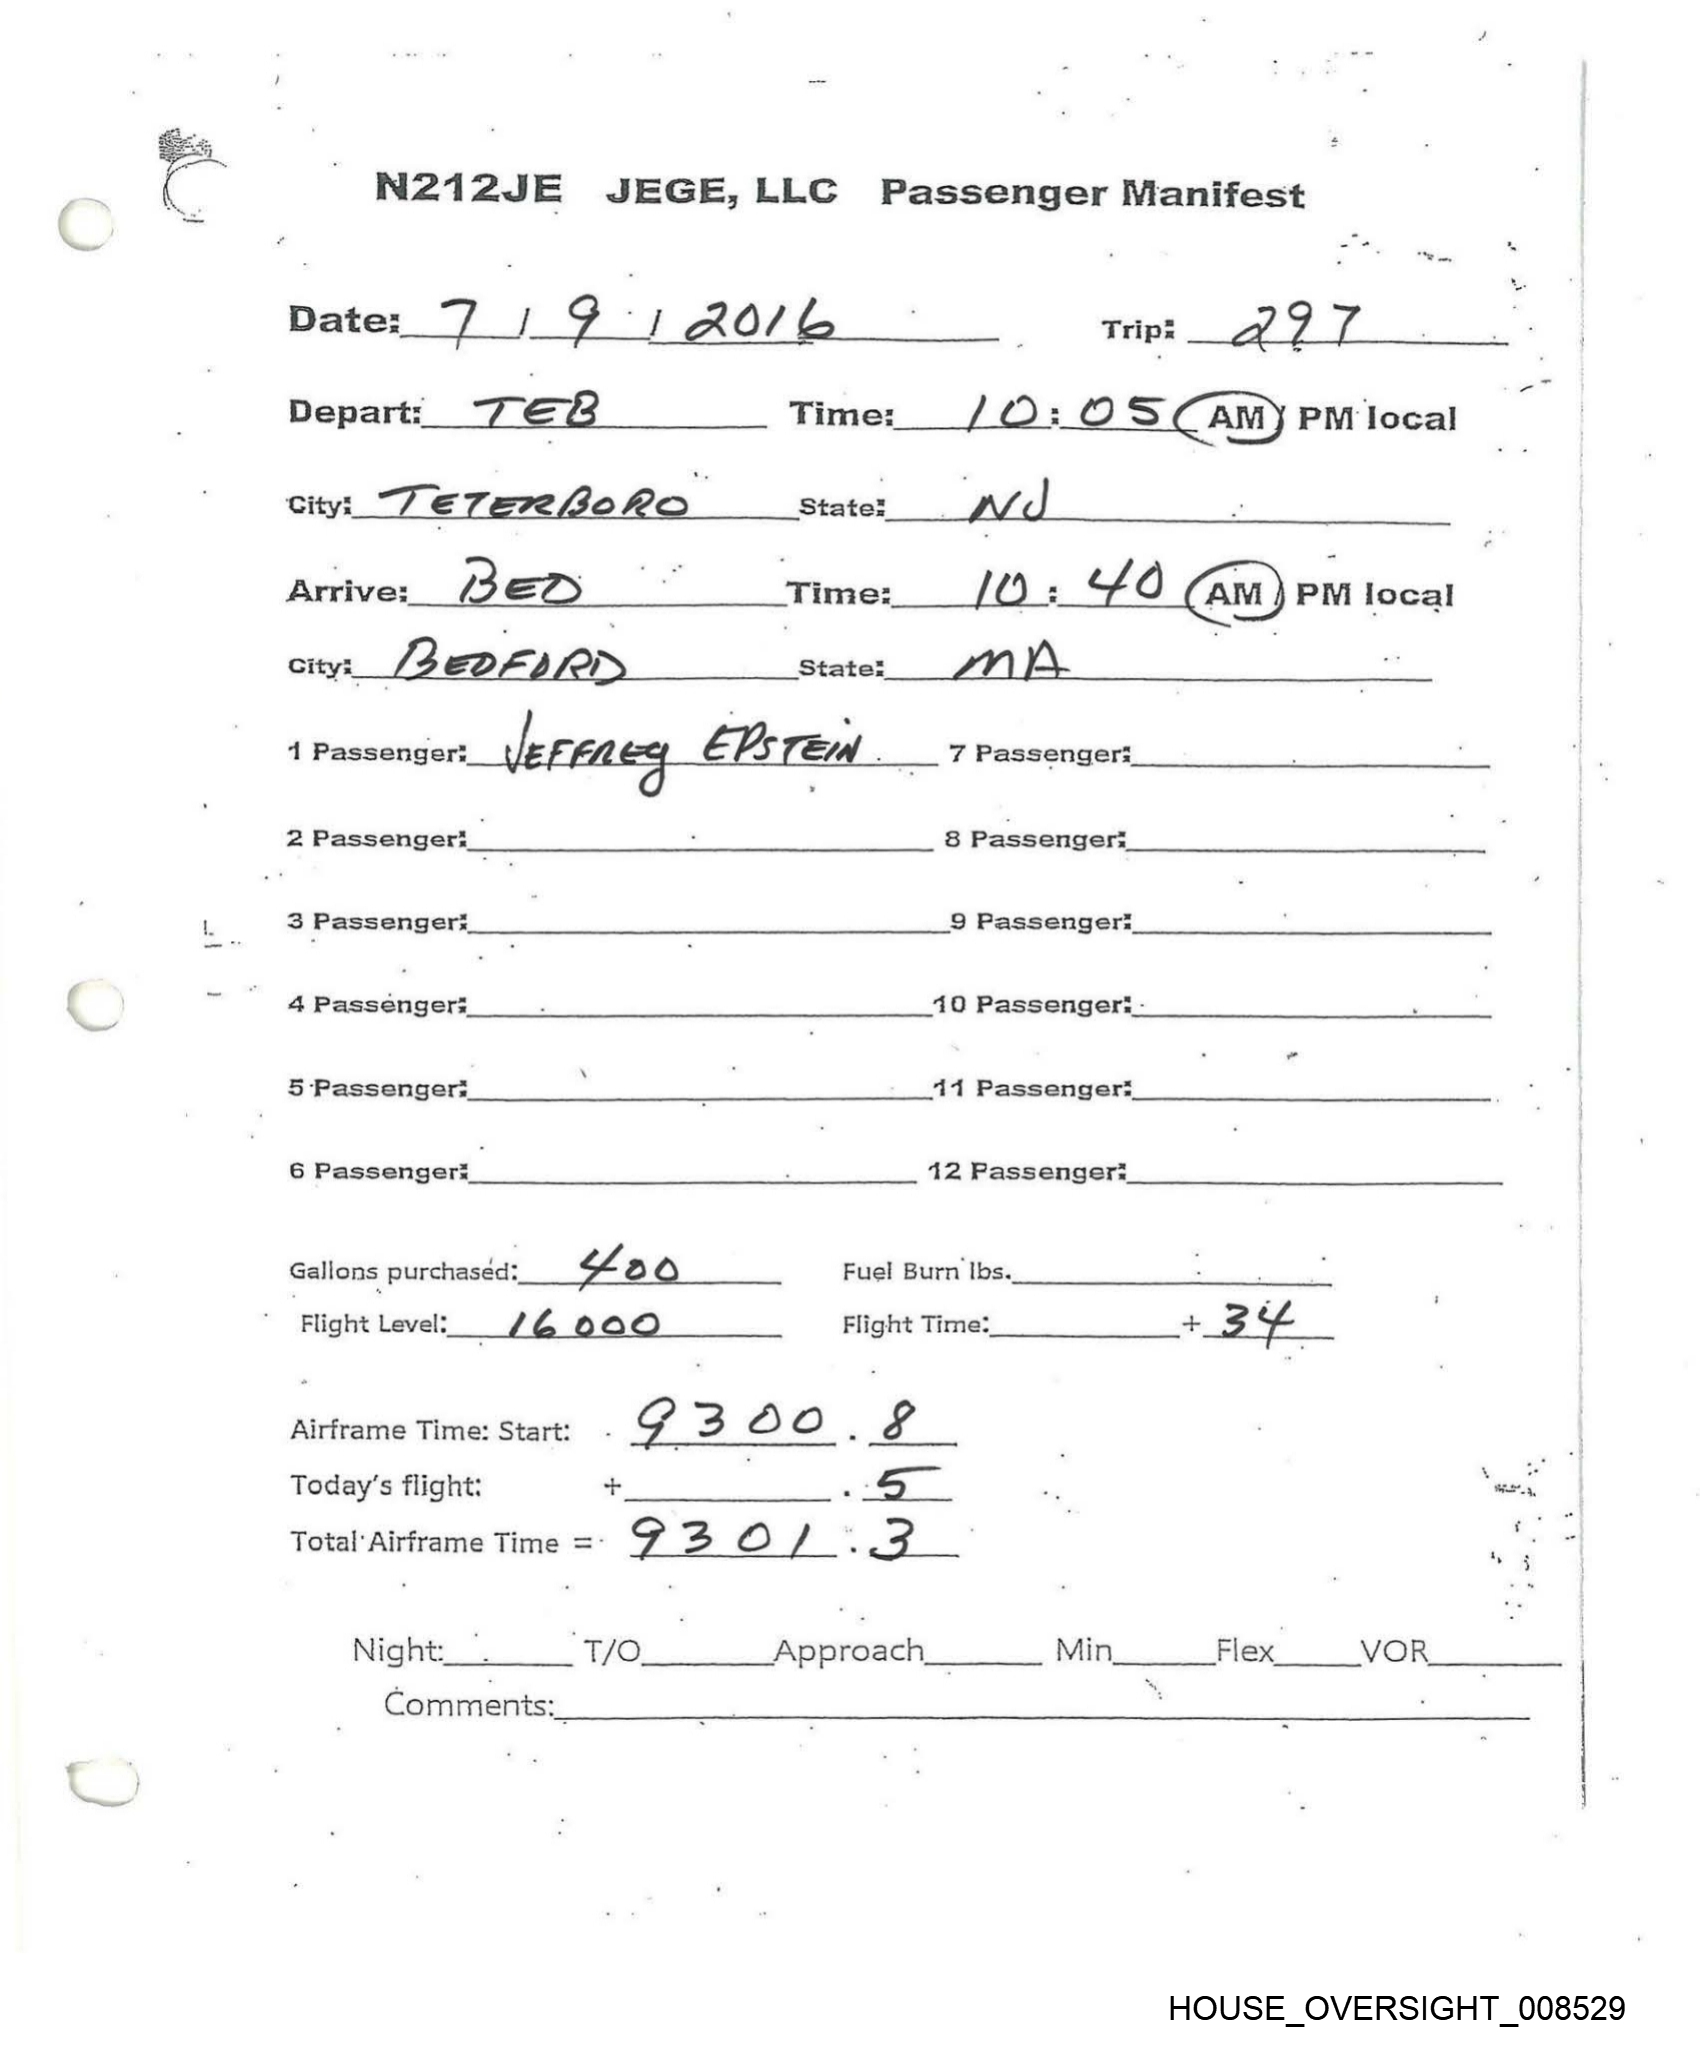 N212JE JEGE, LLC Passenger Manifest
Date: 7 / 9 / 2016 Trip: 297
Depart: TEB Time: 10:05 AM / PM local
City: TETERBORO State: NJ
Arrive: BED Time: 10:40 AM / PM local
City: BEDFORD State: MA
1 Passenger: JEFFREY EPSTEIN 7 Passenger:
2 Passenger: 8 Passenger:
3 Passenger: 9 Passenger:
4 Passenger: 10 Passenger:
5 Passenger: 11 Passenger:
6 Passenger: 12 Passenger:
Gallons purchased: 400 Fuel Burn lbs.
Flight Level: 16000 Flight Time: + 34
Airframe Time: Start: 9300.8
Today's flight: + .5
Total Airframe Time = 9301.3
Night: T/O Approach Min Flex VOR
Comments:
HOUSE_OVERSIGHT_008529